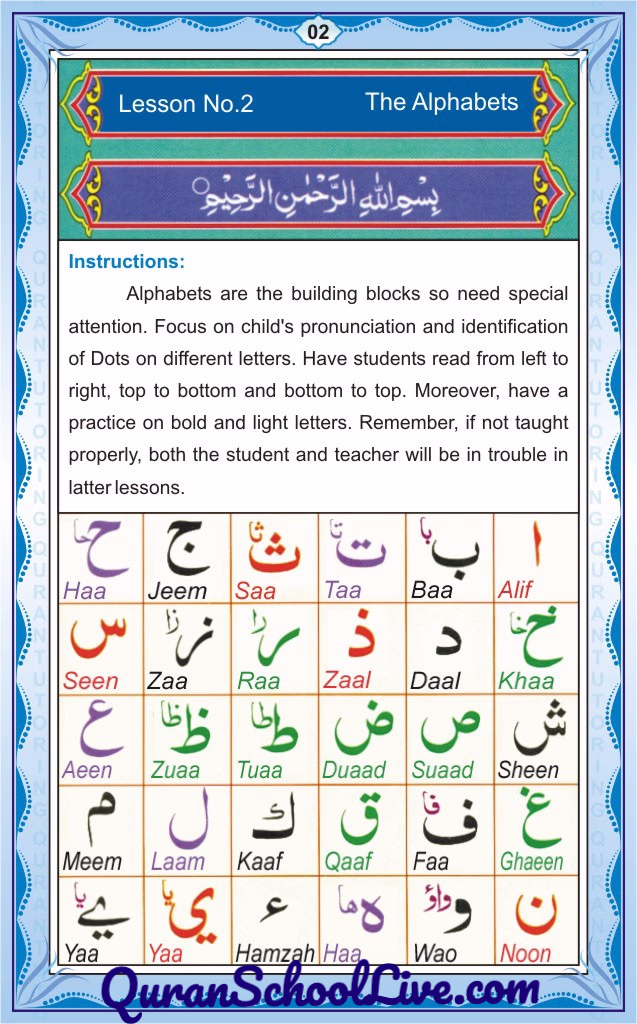 02
Lesson No.2 The Alphabets
بِسْمِ اللهِ الرَّحْمٰنِ الرَّحِيْمِ○
Instructions:
Alphabets are the building blocks so need special
attention. Focus on child's pronunciation and identification
of Dots on different letters. Have students read from left to
right, top to bottom and bottom to top. Moreover, have a
practice on bold and light letters. Remember, if not taught
properly, both the student and teacher will be in trouble in
latter lessons.
ا ب با ت تا ث ثا ج ح حا
Haa Jeem Saa Taa Baa Alif
خ خا د ذ ر را ز زا س
Seen Zaa Raa Zaal Daal Khaa
ش ص ض ط طا ظ ظا ع
Aeen Zuaa Tuaa Duaad Suaad Sheen
غ ف فا ق ك ل م
Meem Laam Kaaf Qaaf Faa Ghaeen
ن و واؤ ہ ھا ء ي یا ے یا
Yaa Yaa Hamzah Haa Wao Noon
QuranSchoolLive.com